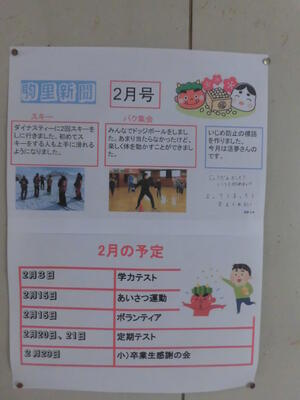 駒里新聞
2月号
スキー
ダイナスティーに2回スキーを
しに行きました。初めてス
キーをする人も上手に滑れる
ようになりました。
バク集会
みんなでドッジボールをしまし
た。あまり当たらなかったけど、
楽しく体を動かすことができまし
た。
いじめ防止の標語
を作りました。
今月は
さんの
です。
2月の予定
2月3日 学力テスト
2月15日 あいさつ運動
2月15日 ボランティア
2月20日、21日 定期テスト
2月29日 小)卒業生感謝の会